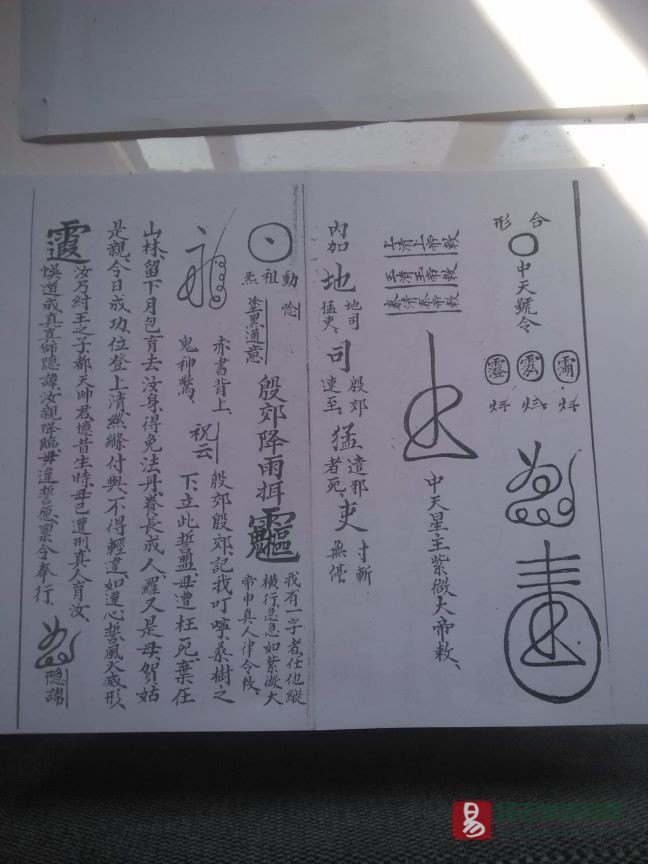 合形
中天號令
上清上帝敕
玉清玉帝敕
泰清泰帝敕
中天星主紫微大帝敕、
內加
地 地司猛吏、
司 殷郊速至、
猛 違邪者死、
吏 寸斬無停
動祖炁
唸
塗黑通意
殷郊降雨
我有一字者、任他縱
橫行、急急如紫微大
帝申真人律令敕、
亦書背上、
鬼神驚、
祝云
殷郊殷郊、記我叮嚀、桑樹之
下、立此誓盟、母遭枉死、棄在
山林、留下月包育去汝身、得免法丹、養長成人、羅又是母、賀姑
是親、今日成功、位登上清、絲縧付與、不得輕違、如違心誓、風火滅形、
汝乃紂王之子、都天帥君、憶昔生時、母已遭刑、真人育汝、
悞道成真、真師隱諱、汝親降臨、毋違誓愿、禀令奉行、
隱諱
易